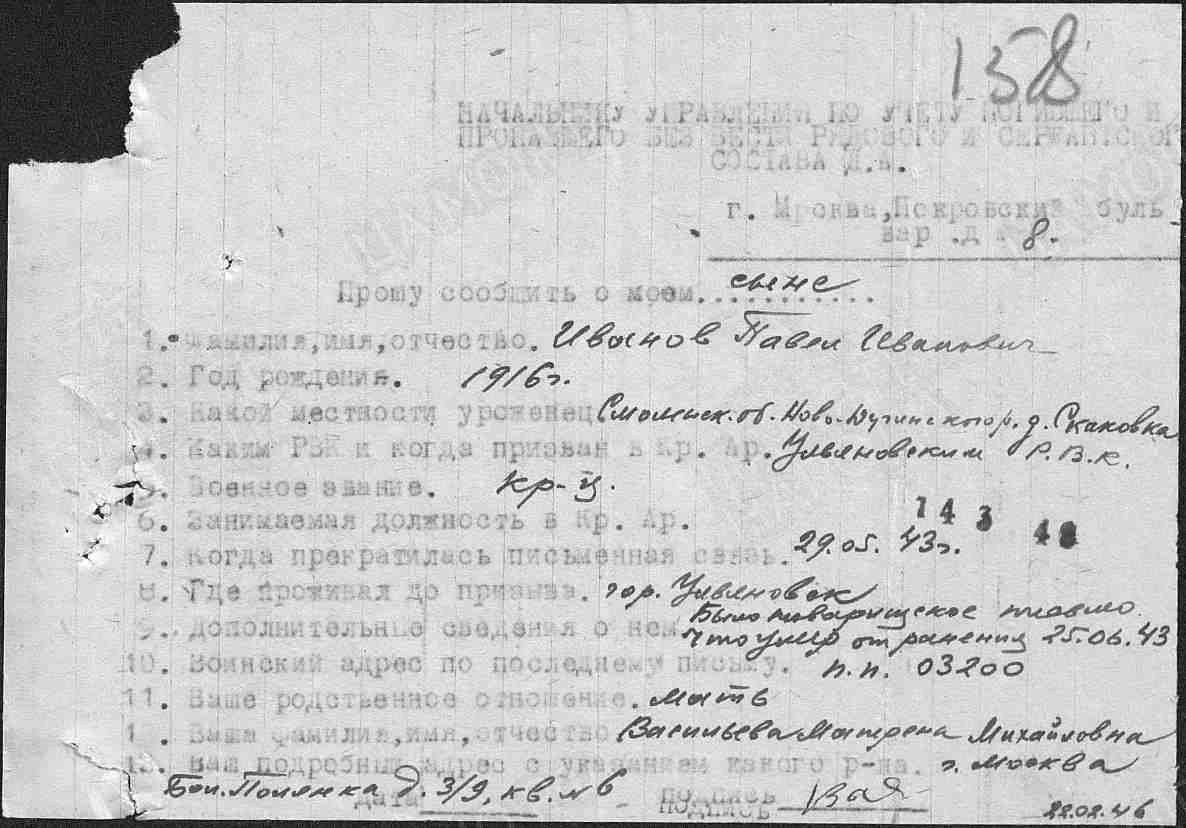 158
НАЧАЛЬНИКУ УПРАВЛЕНИЯ ПО УЧЕТУ ПОГИБШЕГО И
ПРОПАВШЕГО БЕЗ ВЕСТИ РЯДОВОГО И СЕРЖАНТСКОГ
СОСТАВА К.А.
г. Москва, Покровский буль
вар .д . 8.
Прошу сообщить о моем. сыне
1. Фамилия, имя, отчество. Иванов Павел Иванович
2. Год рождения. 1916 г.
3. Какой местности уроженец Смоленск. об. Ново-Дугинского р. д. Скаковка
4. Каким РВК и когда призван в Кр. Ар. Ульяновским Р.В.К.
5. Военное звание. кр-ц.
6. Занимаемая должность в Кр. Ар. 14 3 48
7. Когда прекратилась письменная связь. 29.05. 43 г.
8. Где проживал до призыва. гор. Ульяновск
Было товарищеское письмо
9. Дополнительные сведения о нем что умер от ранений 25.06.43
10. Воинский адрес по последнему письму. п.п. 03200
11. Ваше родственное отношение. мать
1 . Ваша фамилия, имя, отчество Васильева Матрена Михайловна
13. Ваш подробный адрес с указанием какого р-на. г. Москва
Бол. Полянка д. 3/9, кв. № 6
Дата Подпись
22.02.46